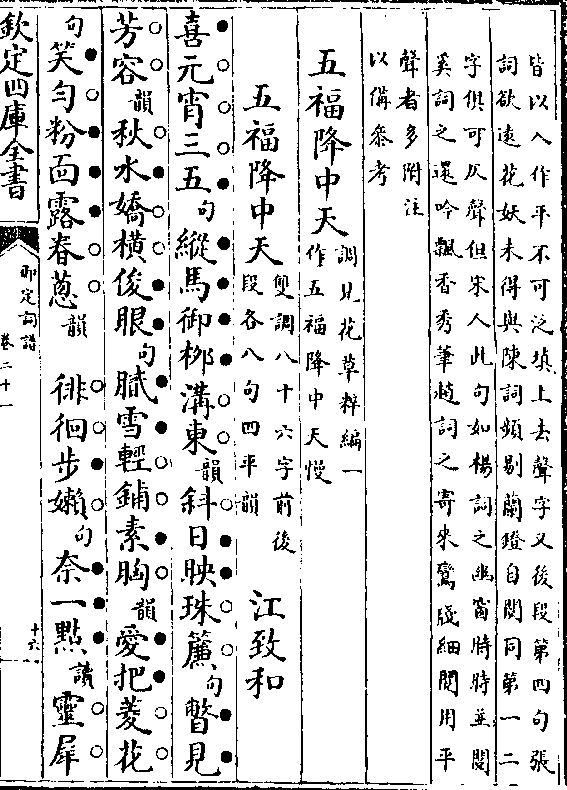 皆以入作平不可泛填上去聲字又後段第四句張
詞欲遠花妖未得與陳詞頻剔蘭燈自閱同第一二
字俱可仄聲但宋人此句如楊詞之幽窗時時並閱
奚詞之還吟飄香秀筆趙詞之寄來鸞牋細閱用平
聲者多附注
以備參考
五福降中天調見花草粹編一
作五福降中天慢
五福降中天雙調八十六字前後
段各八句四平韻 江致和
喜元宵三五句縱馬御柳溝東韻斜日映珠簾句瞥見
芳容韻秋水嬌橫俊眼句膩雪輕鋪素胸韻愛把菱花
句笑勻粉面露春葱韻 徘徊步嬾句奈一點讀靈犀
欽定四庫全書
御定詞譜
卷二十一
十六